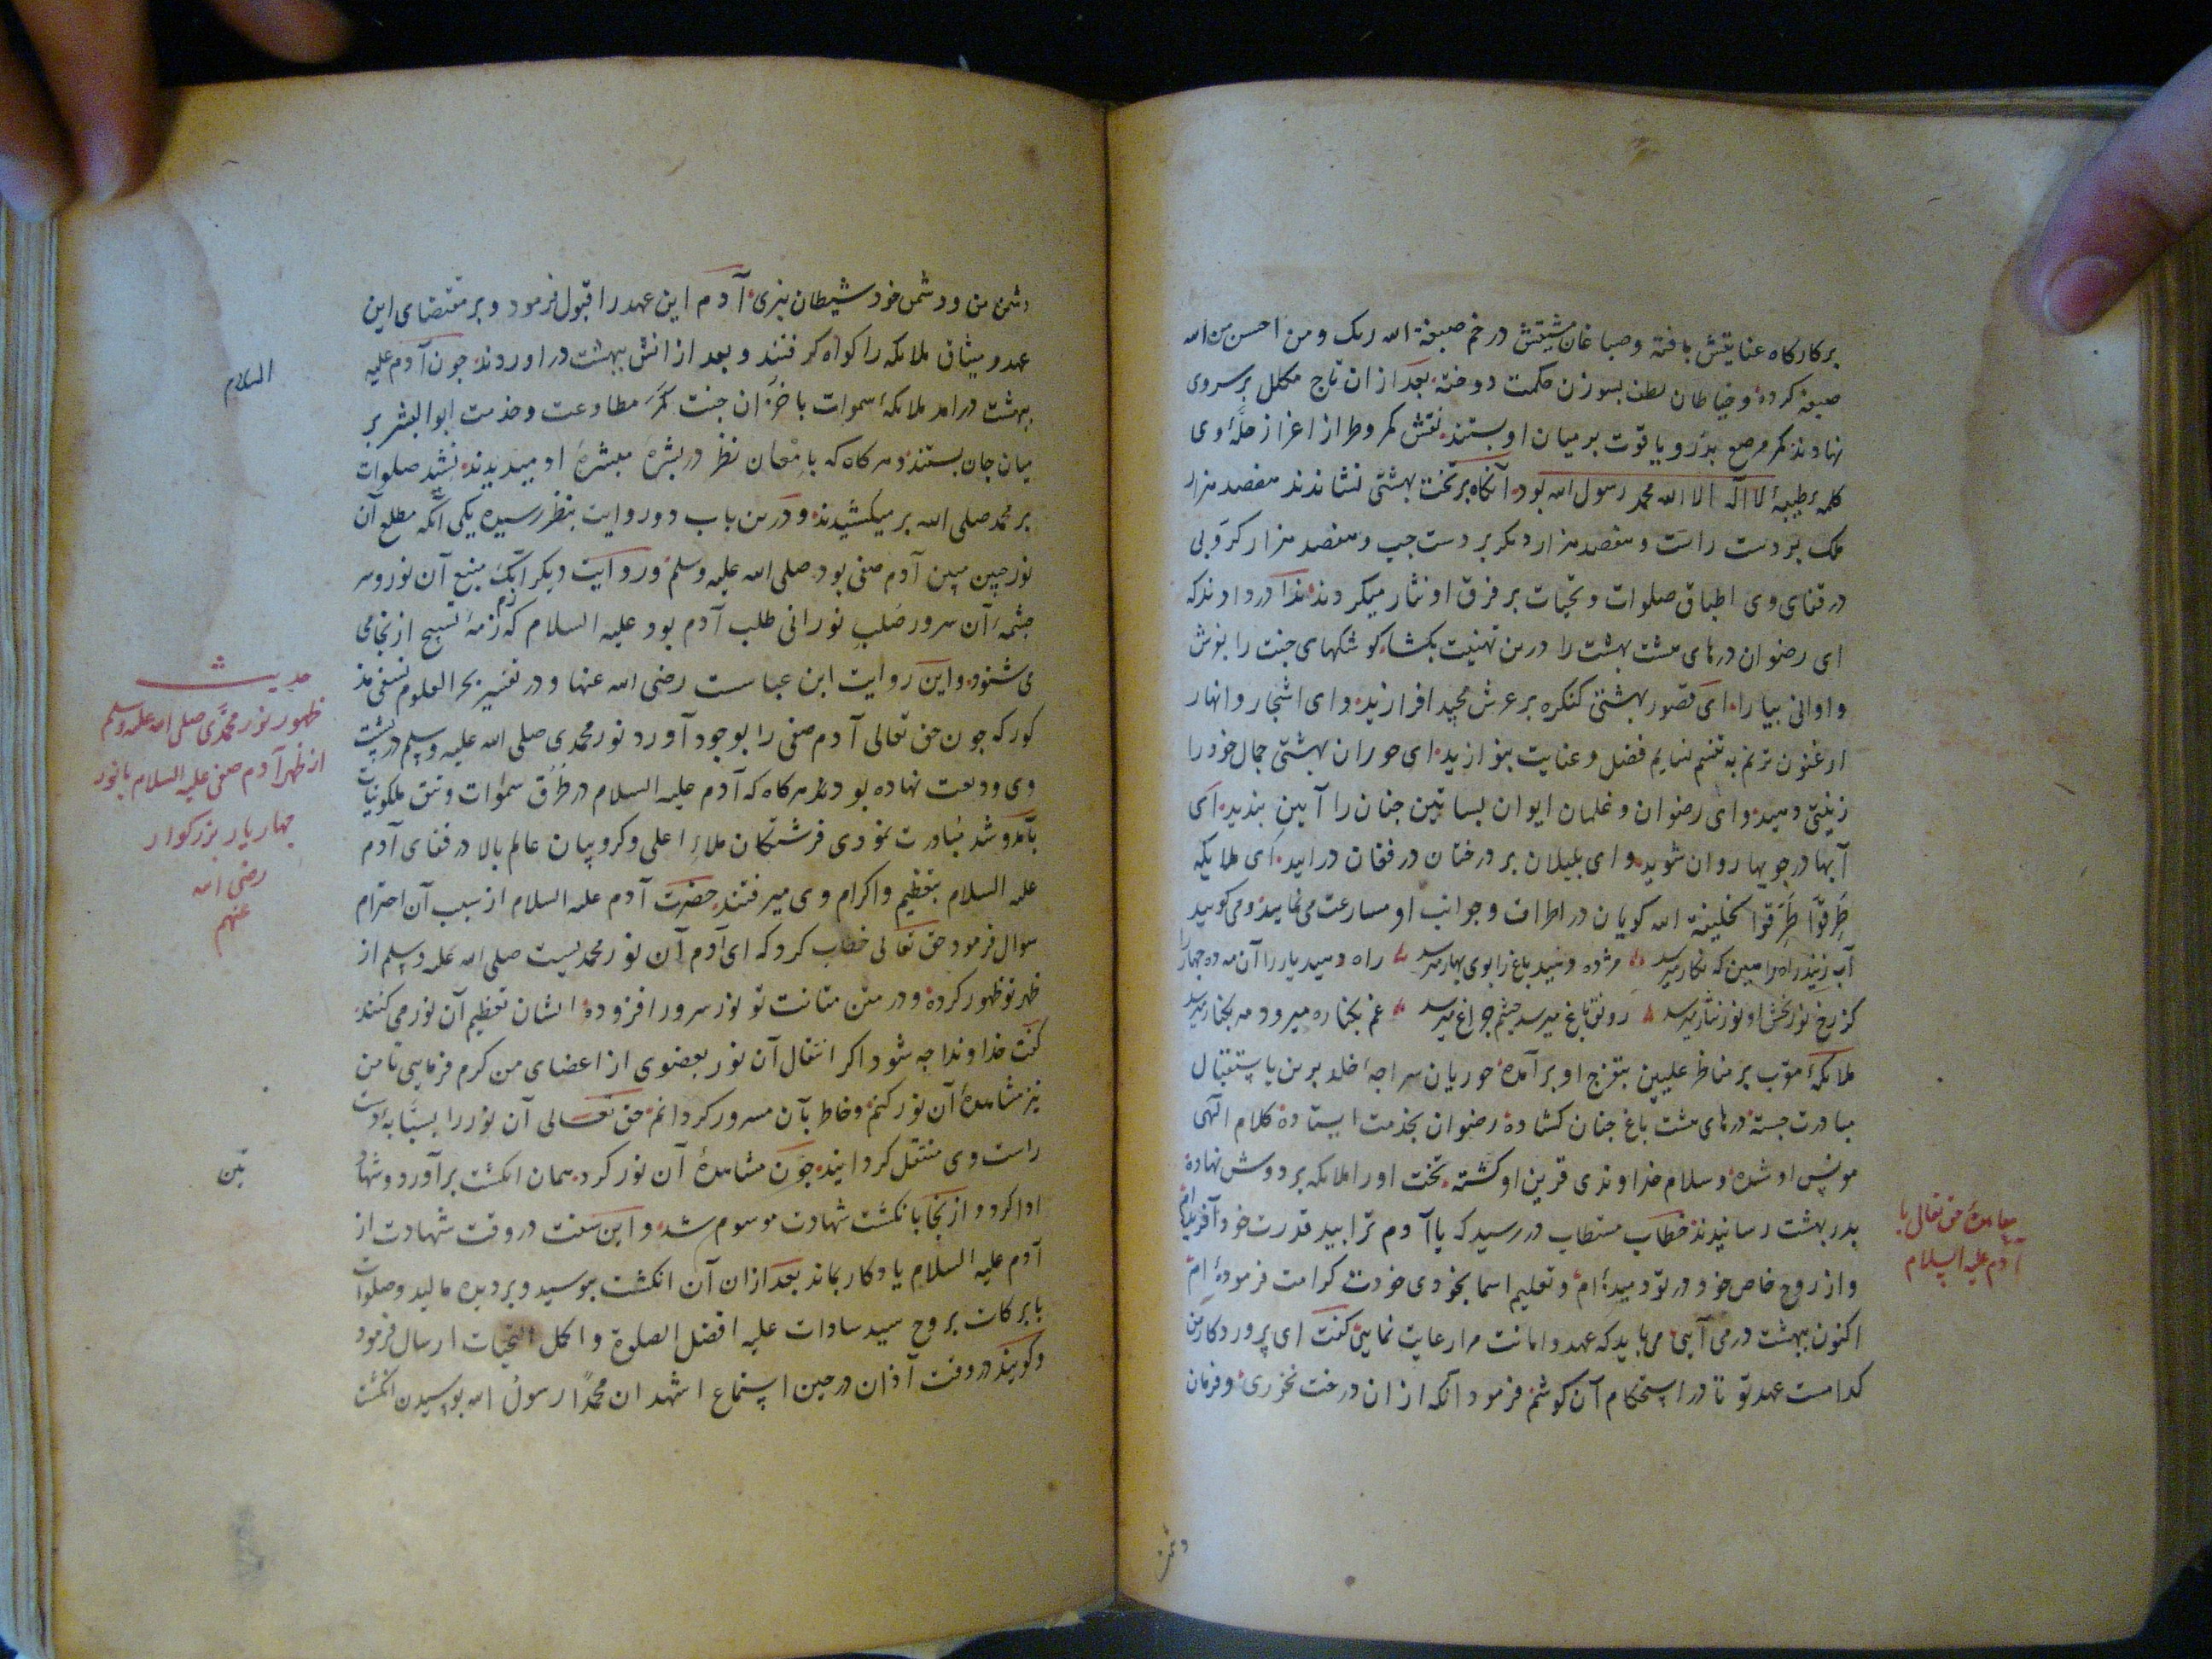 بركاركاه عنايتش بافته وصباغان مشيتش در خم صبغة الله رنك ومن احسن من الله
صبغة كرده وخياطان لطف بسوزن حكمت دوخته بعد ازان تاج مكلل بر سر وى
نهادند كمر مرصع بدر و ياقوت بر ميان او بستند نقش كمر وطراز اعزاز حلّهٔ وى
كلمهٔ طيبهٔ لا اله الا الله محمد رسول الله بود آنكاه بر تخت بهشتى نشاندند هفصد هزار
ملك بر دست راست وهفصد هزار ديكر بر دست چپ وهفصد هزار كروبى
در قفاى وى اطباق صلوات وتحيات بر فرق او نثار ميكردند ندا در دادند كه
اى رضوان درهاى هشت بهشت را درين تهنيت بكشا كوشكهاى جنت را بفرش
واوانى بيارا اى قصور بهشتى كنكره بر عرش مجيد افرازيد واى اشجار وانهار
ارغنون ترنم به تنسم نسايم فضل وعنايت بنوازيد اى حوران بهشتى جمال خود را
زينتى دهيد واى رضوان وغلمان ايوان بساتين جنان را آيين بنديد اى
آبها در جويها روان شويد واى بلبلان بر درختان در فغان درآييد اى ملايكه
طَرِّقوا طَرِّقوا لخليفة الله كويان در اطراف وجوانب او مسارعت مى نماييد ومى كوييد
آب زنيد راه را هين كه نكار ميرسد مژده دهيد باغ را بوى بهار ميرسد راه دهيد يار را آن مه ده چهار را
كز رخ نور بخش او نور نثار ميرسد رونق باغ ميرسد چشم چراغ ميرسد غم بكناره ميرود مه بكنار ميرسد
ملائكهٔ مقرب بر مناظر عليين بتفرج او برآمده حوريان سراچهٔ خلد برين باستقبال
مبادرت جسته درهاى هشت باغ جنان كشاده رضوان بخدمت ايستاده كلام الهى
مونس او شده وسلام خداوندى قرين او كشته تخت او را ملائكه بر دوش نهاده
بدر بهشت رسانيدند خطاب مستطاب در رسيد كه يا آدم ترا بيد قدرت خود آفريده ام
واز روح خاص خود در تو دميده ام وتعليم اسما بخودى خودت كرامت فرموده ام
اكنون ببهشت در مى آيى مى بايد كه عهد وامانت مرا رعايت نمايى كفت اى پروردكار من
كدامست عهد تو تا در استحكام آن كوشم فرمود آنكه ازان درخت نخورى وفرمان
معاهدهٔ حق تعالى با
آدم عليه السلام
دشمن من ودشمن خود شيطان نبرى آدم اين عهد را قبول فرمود وبر مقتضاى اين
عهد وميثاق ملائكه را كواه كرفتند وبعد ازانش ببهشت درآوردند چون آدم عليه
السلام
ببهشت درآمد ملائكهٔ سموات با خزان جنت كمر مطاوعت وخدمت ابوالبشر بر
ميان جان بستند وهركاه كه بامعان نظر در بشرهٔ مبشرهٔ او ميديدند نشيد صلوات
بر محمد صلى الله بر ميكشيدند ودرين باب دو روايت بنظر رسيده يكى آنكه مطلع آن
نور جبين مبين آدم صفى بود صلى الله عليه وسلم وروايت ديكر آنكه منبع آن نور وسر
چشمهٔ آن سرور صلب نورانى طلب آدم بود عليه السلام كه زمزمهٔ تسبيح ازنجا مى
مى شنود واين روايت ابن عباست رضى الله عنهما ودر تفسير بحر العلوم نسفى مذ
كور كه چون حق تعالى آدم صفى را بوجود آورد نور محمدى صلى الله عليه وسلم در پشت
وى وديعت نهاده بود هركاه كه آدم عليه السلام در طرق سموات وتتق ملكوتيات
بآمد وشد مبادرت نمودى فرشتكان ملاء اعلى وكروبيان عالم بالا در قفاى آدم
عليه السلام بتعظيم واكرام وى ميرفتند حضرت آدم عليه السلام از سبب آن احترام
سوال فرمود حق تعالى خطاب كرد كه اى آدم آن نور محمديست صلى الله عليه وسلم از
ظهر تو ظهور كرده ودر متن متانت تو نور سرور افزوده ايشان تعظيم آن نور مى كنند
كفت خداوندا چه شود اكر انتقال آن نور بعضوى از اعضاى من كرم فرمايى تا من
نيز مشاهدهٔ آن نور كنم وخاطر بآن مسرور كردانم حق تعالى آن نور را بسبابهٔ دست
راست وى منتقل كردانيد چون مشاهدهٔ آن نور كرد همان انكشت برآورد وشهادت
ادا كرد وازنجا بانكشت شهادت موسوم شد واين سنت در وقت شهادت از
آدم عليه السلام يادكار بماند بعد ازان آن انكشت ببوسيد وبر ديده ماليد وصلوات
با بركات بروح سيد سادات عليه افضل الصلوة واكمل التحيات ارسال فرمود
وكويند در وقت آذان در حين استماع اشهد ان محمدًا رسول الله بوسيدن انكشت
حديث
ظهور نور محمّدى صلى الله عليه وسلم
از ظهر آدم صفى عليه السلام با نور
چهار يار بزركوار
رضى الله
عنهم